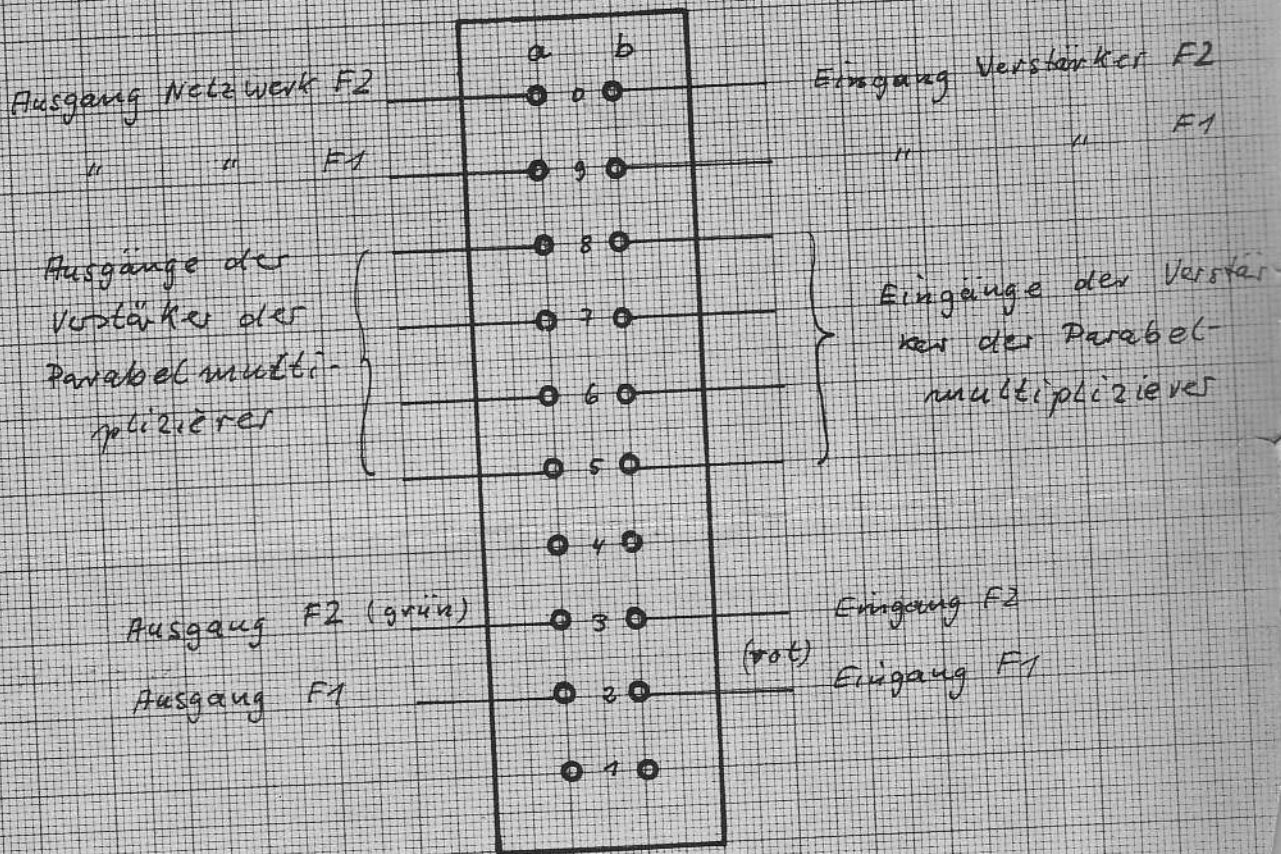 a b
Ausgang Netzwerk F2 0 Eingang Verstärker F2
" " F1 9 " " F1
8
Ausgänge der
Verstärker der
Parabelmulti-
plizierer
7
6
Eingänge der Verstär-
ker der Parabel-
multiplizierer
5
4
Ausgang F2 (grün) 3 Eingang F2
Ausgang F1 2 (rot) Eingang F1
1